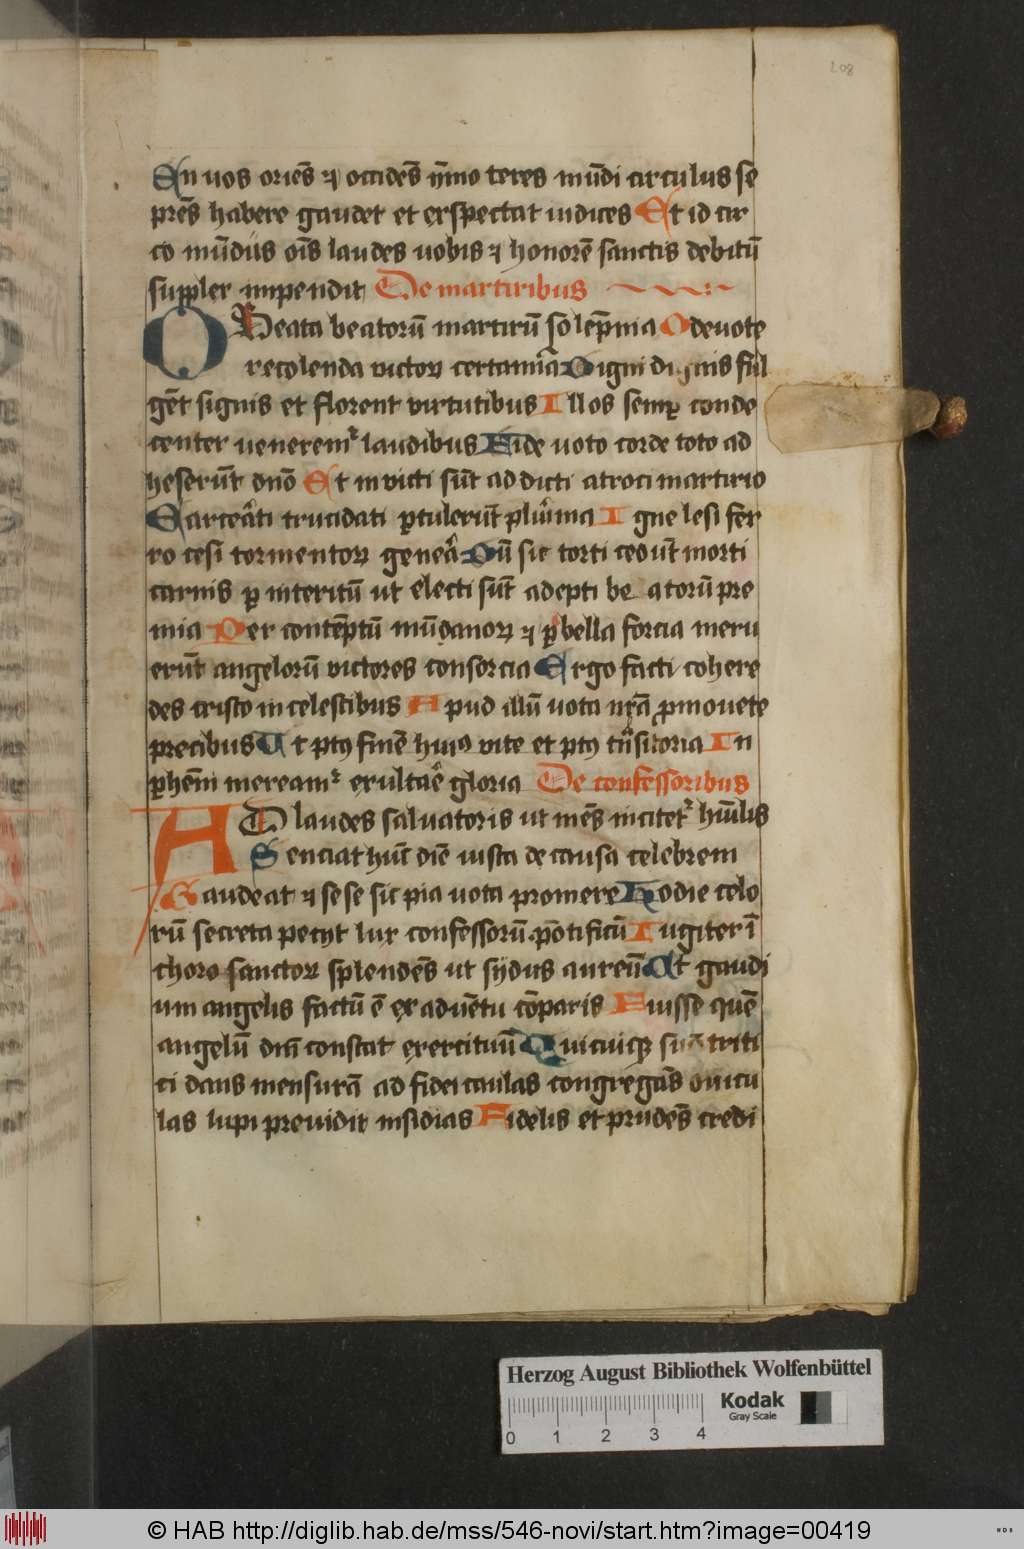 208
En uos oriēs ⁊ occidēs ȳmo teres mūdi circulus se
prēs habere gaudet et exspectat iudices Et id cir
co mūdus oīs laudes uobis ⁊ honorē sanctis debitū
suppler impendit De martiribus
O Beata beatorū martirū solēpnia O deuote
recolenda victoꝝ certamīa Digni dignis ful
gēt signis et florent virtutibus Illos semꝑ conde
center ueneremᷣ laudibus Fide uoto corde toto ad
heserūt dn̄o Et inuicti sūt addicti atroci martirio
Carceāti trucidati ꝑtulerūt plurīma Igne lesi fer
ro cesi tormentoꝝ geneā Dū sic torti cedūt morti
carnis ꝑ interitū ut electi sūt adepti beatorū pre
mia Per contēptū mūdanoꝝ ⁊ ꝑ bella forcia meru
erūt angelorū victores consorcia Ergo facti cohere
des cristo in celestibus Apud illū uota nr̄a promouete
precibus Ut pꝰ finē huiꝰ vite et pꝰ trāsitoria In
ꝑhēni mereamᷣ exultaē gloria De confessoribus
AD laudes saluatoris ut mēs incitetᷣ hūilis
Senciat hūc diē iusta de causa celebrem
Gaudeat ⁊ sese sic pia uota promere Hodie celo
rū secreta petijt lux confessorū pōtificū Iugiter ī
choro sanctoꝝ splendēs ut sydus aureū Ut gaudi
um angelis factū ē ex aduētu cōparis Fuisse quē
angelū dn̄i constat exercituū Quicuiqꝫ suā triti
ci dans mensurā ad fidei caulas congregās ouicu
las lupi preuidit insidias Fidelis et prudēs credi
Herzog August Bibliothek Wolfenbüttel
Kodak
Gray Scale
0 1 2 3 4
© HAB http://diglib.hab.de/mss/546-novi/start.htm?image=00419